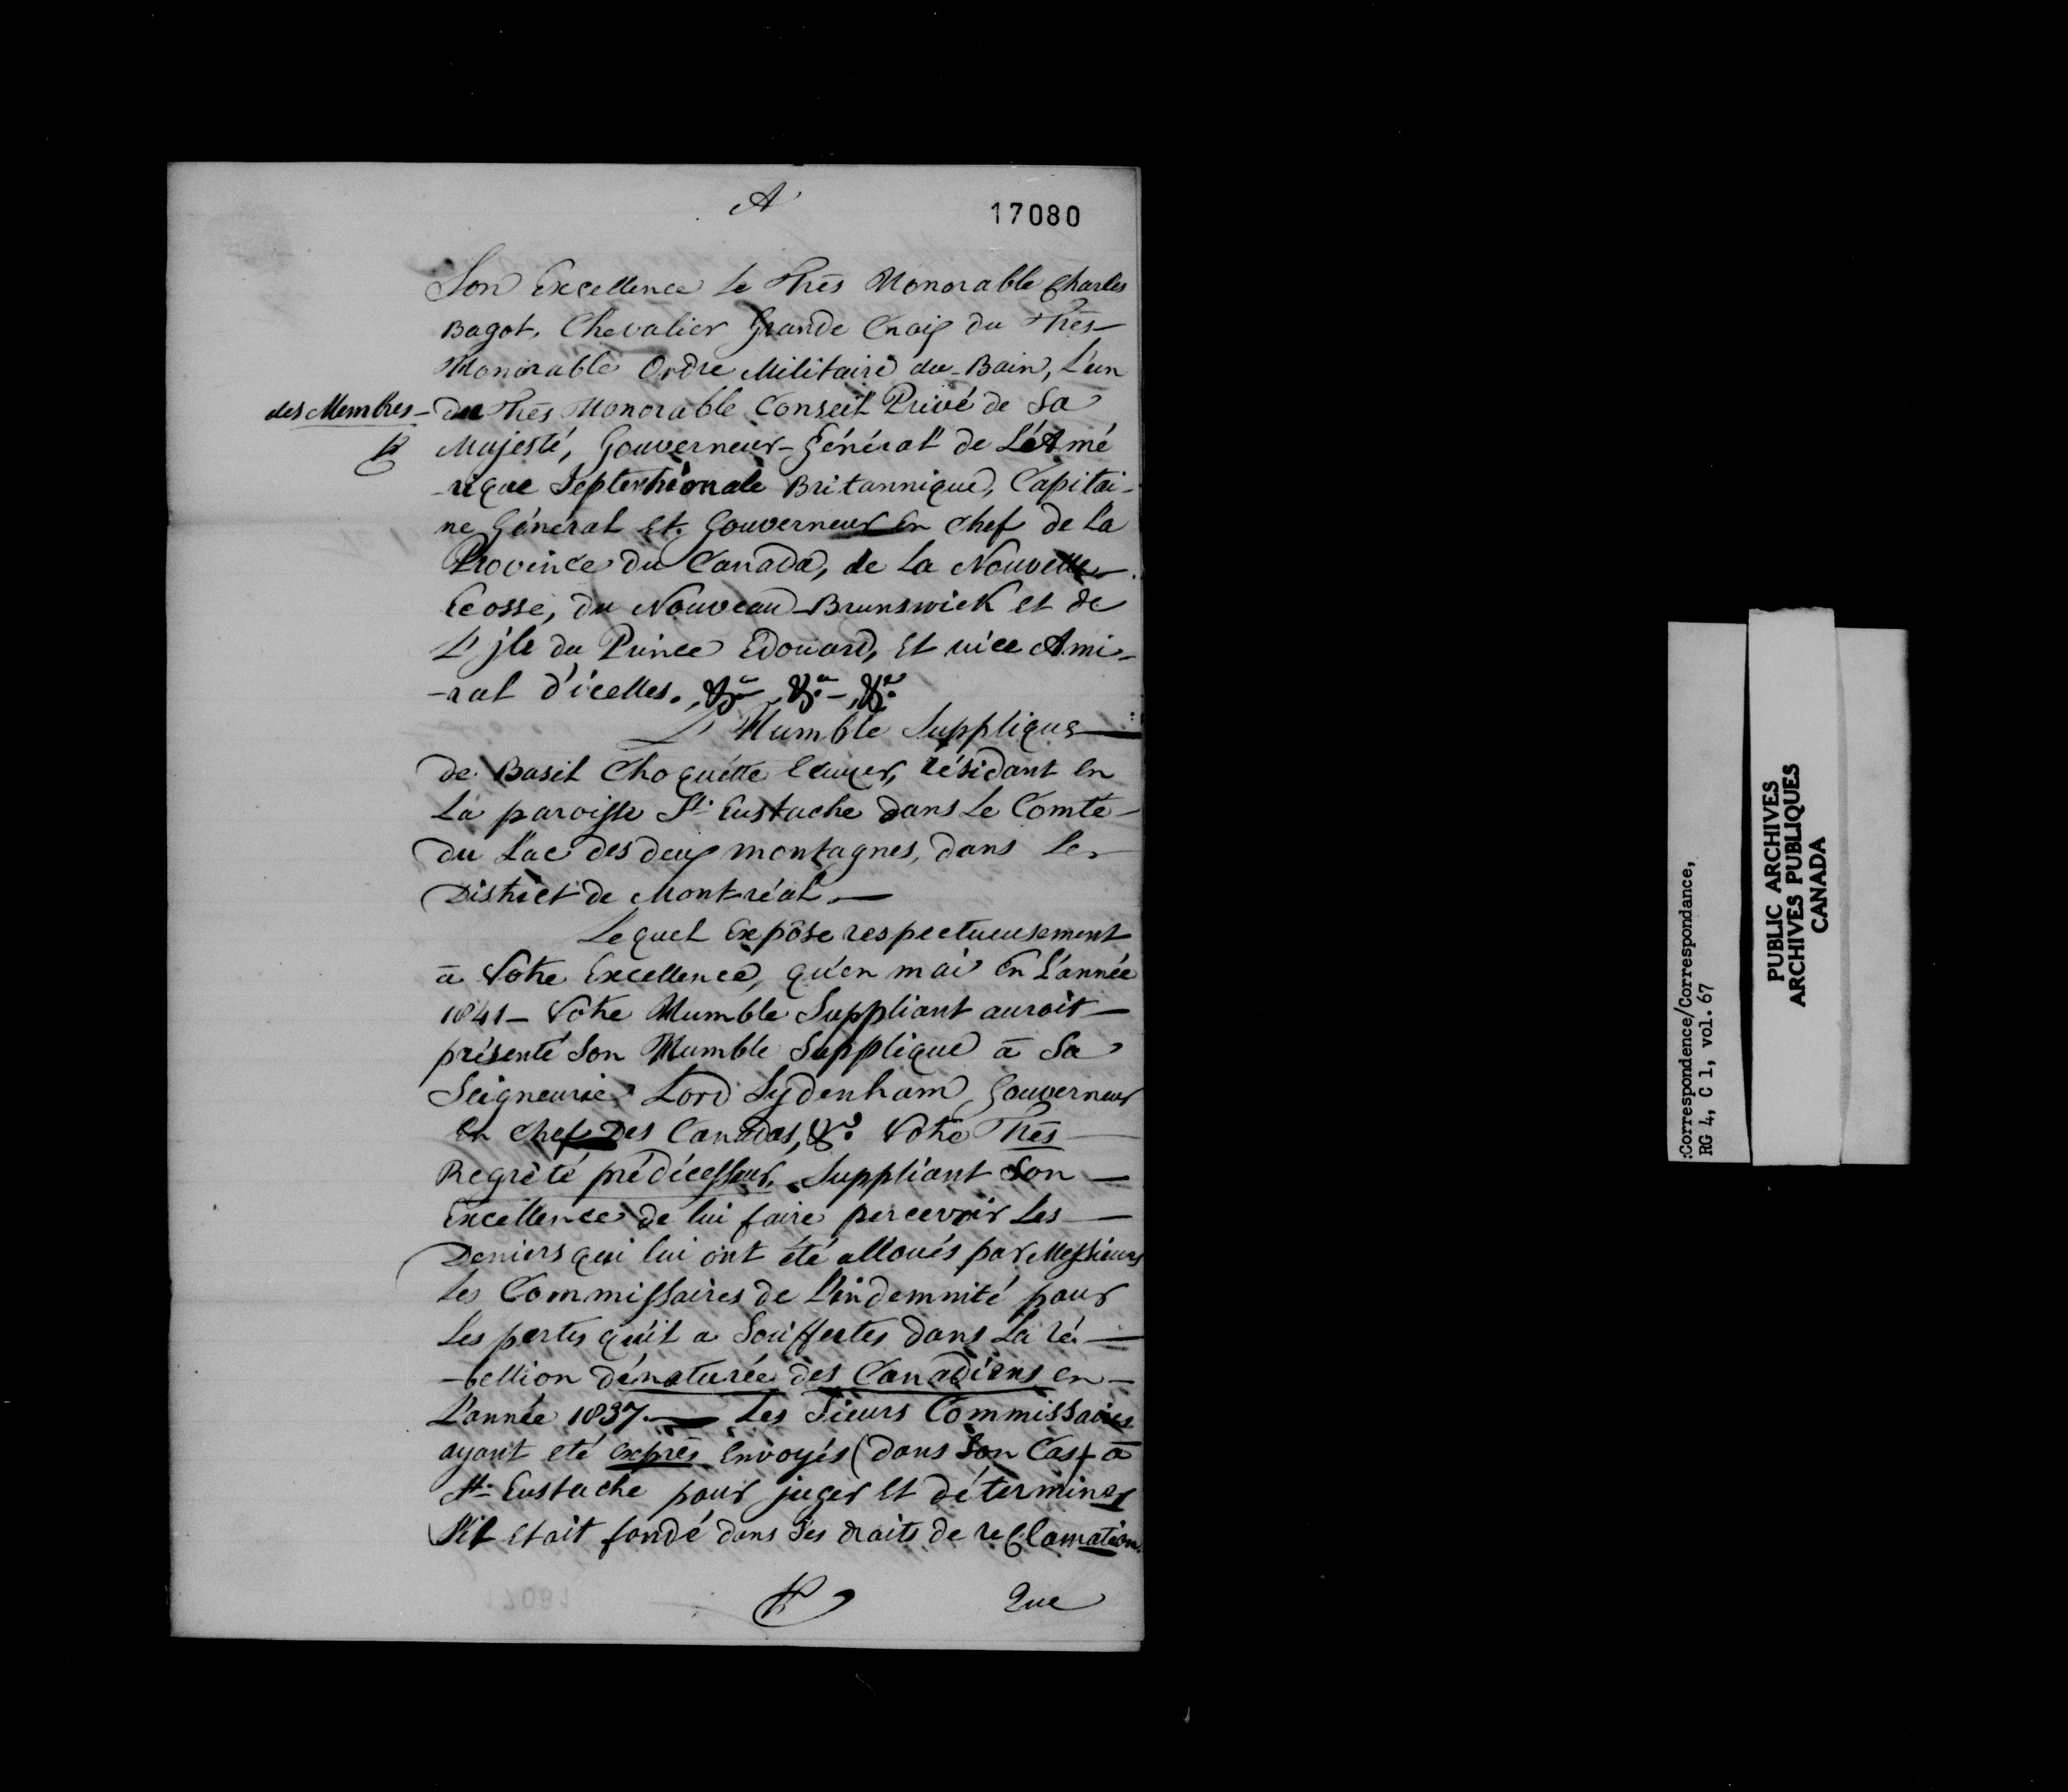 A
17080
Son Excellence le Très Honorable Charles
Bagot, Chevalier Grande Croix du Très-
Honorable Ordre Militaire du-Bain, L'un
des Membres-
du Très Honorable Conseil Privé de Sa
Majesté, Gouverneur-Général de L'Amé
-rique Septentrionale Britannique, Capitai-
ne Général et Gouverneur en chef de la
Province du Canada, de la Nouvelle-
Ecosse, du Nouveau-Brunswick et de
L'jle du Prince Edouard, et vice Ami-
-ral d'icelles. &a, &a-, &a
L'Humble Supplique
de Basil Choquétte Ecuyer, résidant en
La paroisse St. Eustache dans Le Comté-
du Lac des deux montagnes, dans Le
District de Mont-réal.—
Lequel Expôse respectueusement
à Votre Excellence, qu'en mai en L'année
1841- Votre Humble Suppliant auroit-
présenté Son Humble Supplique à Sa
Seigneurie Lord Sydenham, Gouverneur
en chef Des Canadas, &a. Votre Très
Regrèté prédécesseur, Suppliant Son—
Excellence de lui faire percevoir Les—
Deniers qui lui ont été alloués par Messieurs
Les Commissaires de L'indemnité pour
Les pertes qu'il a Souffertes dans La ré-
-bellion dénaturée des Canadiens en-
L'année 1837.— Les Sieurs Commissaires
ayant eté exprès envoyés (dans Son Cas) à
St. Eustache pour juger et déterminer
S'il etait fondé dans Ses droits de reclamation.
Que
17081
:Correspondence/Correspondance,
RG 4, C 1, vol. 67
PUBLIC ARCHIVES
ARCHIVES PUBLIQUES
CANADA